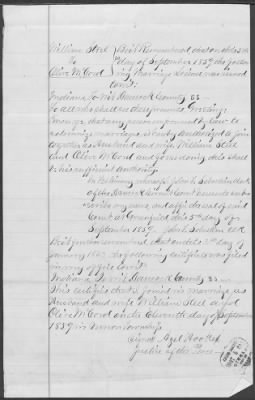 William Steel } Be it Remembered that on this 5th
To } day of September 1859 the follow
Olive McCord } ing Marriage License was issued
Indiana, To Wit Hancock County SS
To all who shall see these presents Greeting
Know ye, that any person empowered by law to
solemnize marriages, is hereby authorized to join
together as Husband and wife William Steel
and Olive McCord and for so doing this shall
be his sufficient authority
In Testimony whereof I John E. Clerk
of the Hancock Circuit Court hereunto subs
cribe my name, and affix the seal of said
Court at Greenfield this 5th day of
September 1859. John E. Clk
Be it further remembered, that on this day of
January the following certificate was filed
in my office
Indiana To wit Hancock County SS
This certifies that I joined in marriage as
Husband and wife William Steel and
Olive McCord on the Eleventh day of September
1859 in Township
Signed
Justice of the Peace